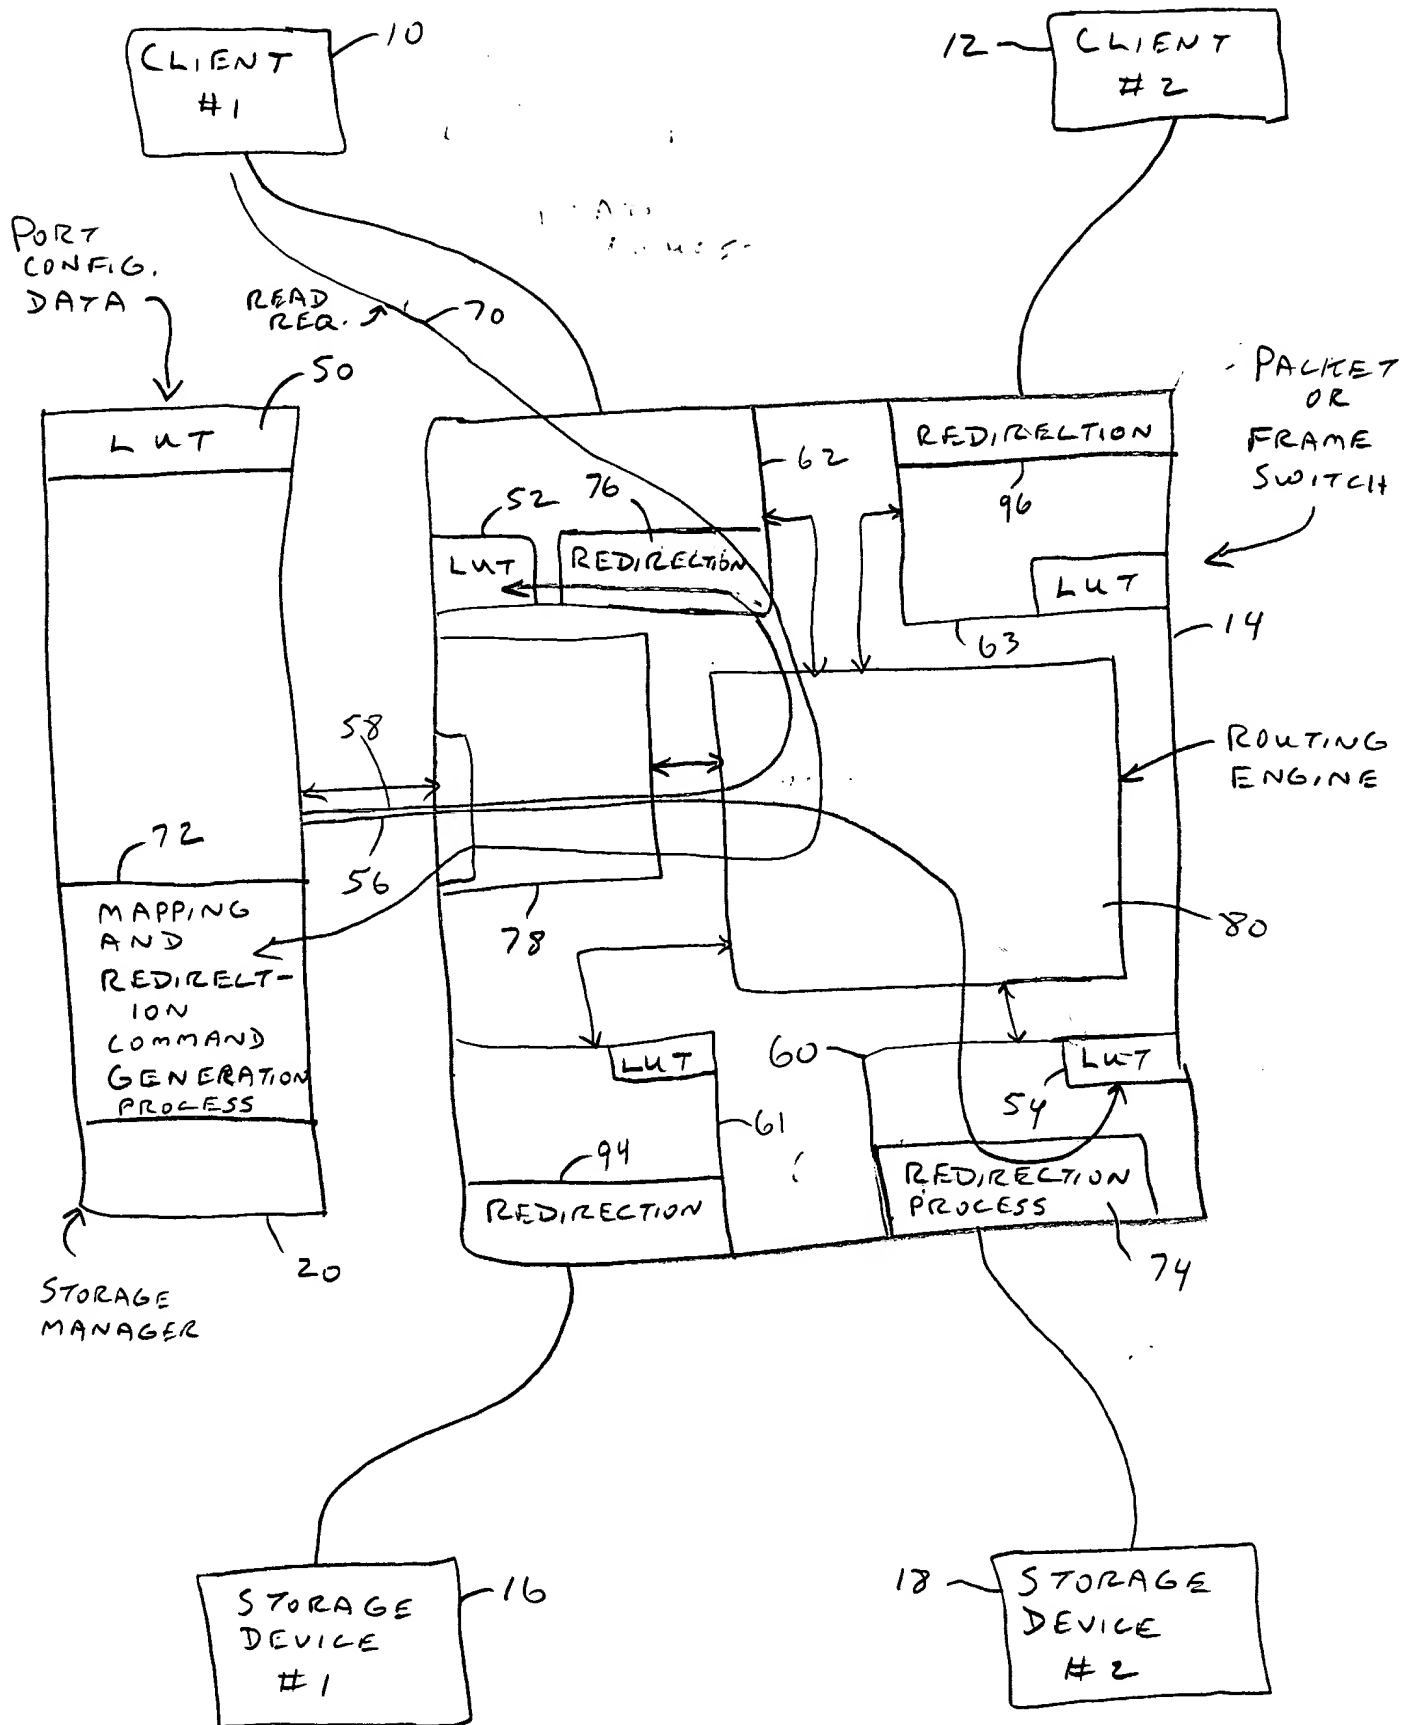 CLIENT
#1
10
12
CLIENT
#2
PORT
CONFIG.
DATA
READ
REQ.
70
50
LUT
PACKET
OR
FRAME
SWITCH
62
REDIRECTION
96
52
76
LUT
REDIRECTION
LUT
63
14
58
56
ROUTING
ENGINE
72
MAPPING
AND
REDIRECT-
ION
COMMAND
GENERATION
PROCESS
78
80
LUT
60
LUT
54
61
94
REDIRECTION
REDIRECTION
PROCESS
74
20
STORAGE
MANAGER
STORAGE
DEVICE
#1
16
18
STORAGE
DEVICE
#2